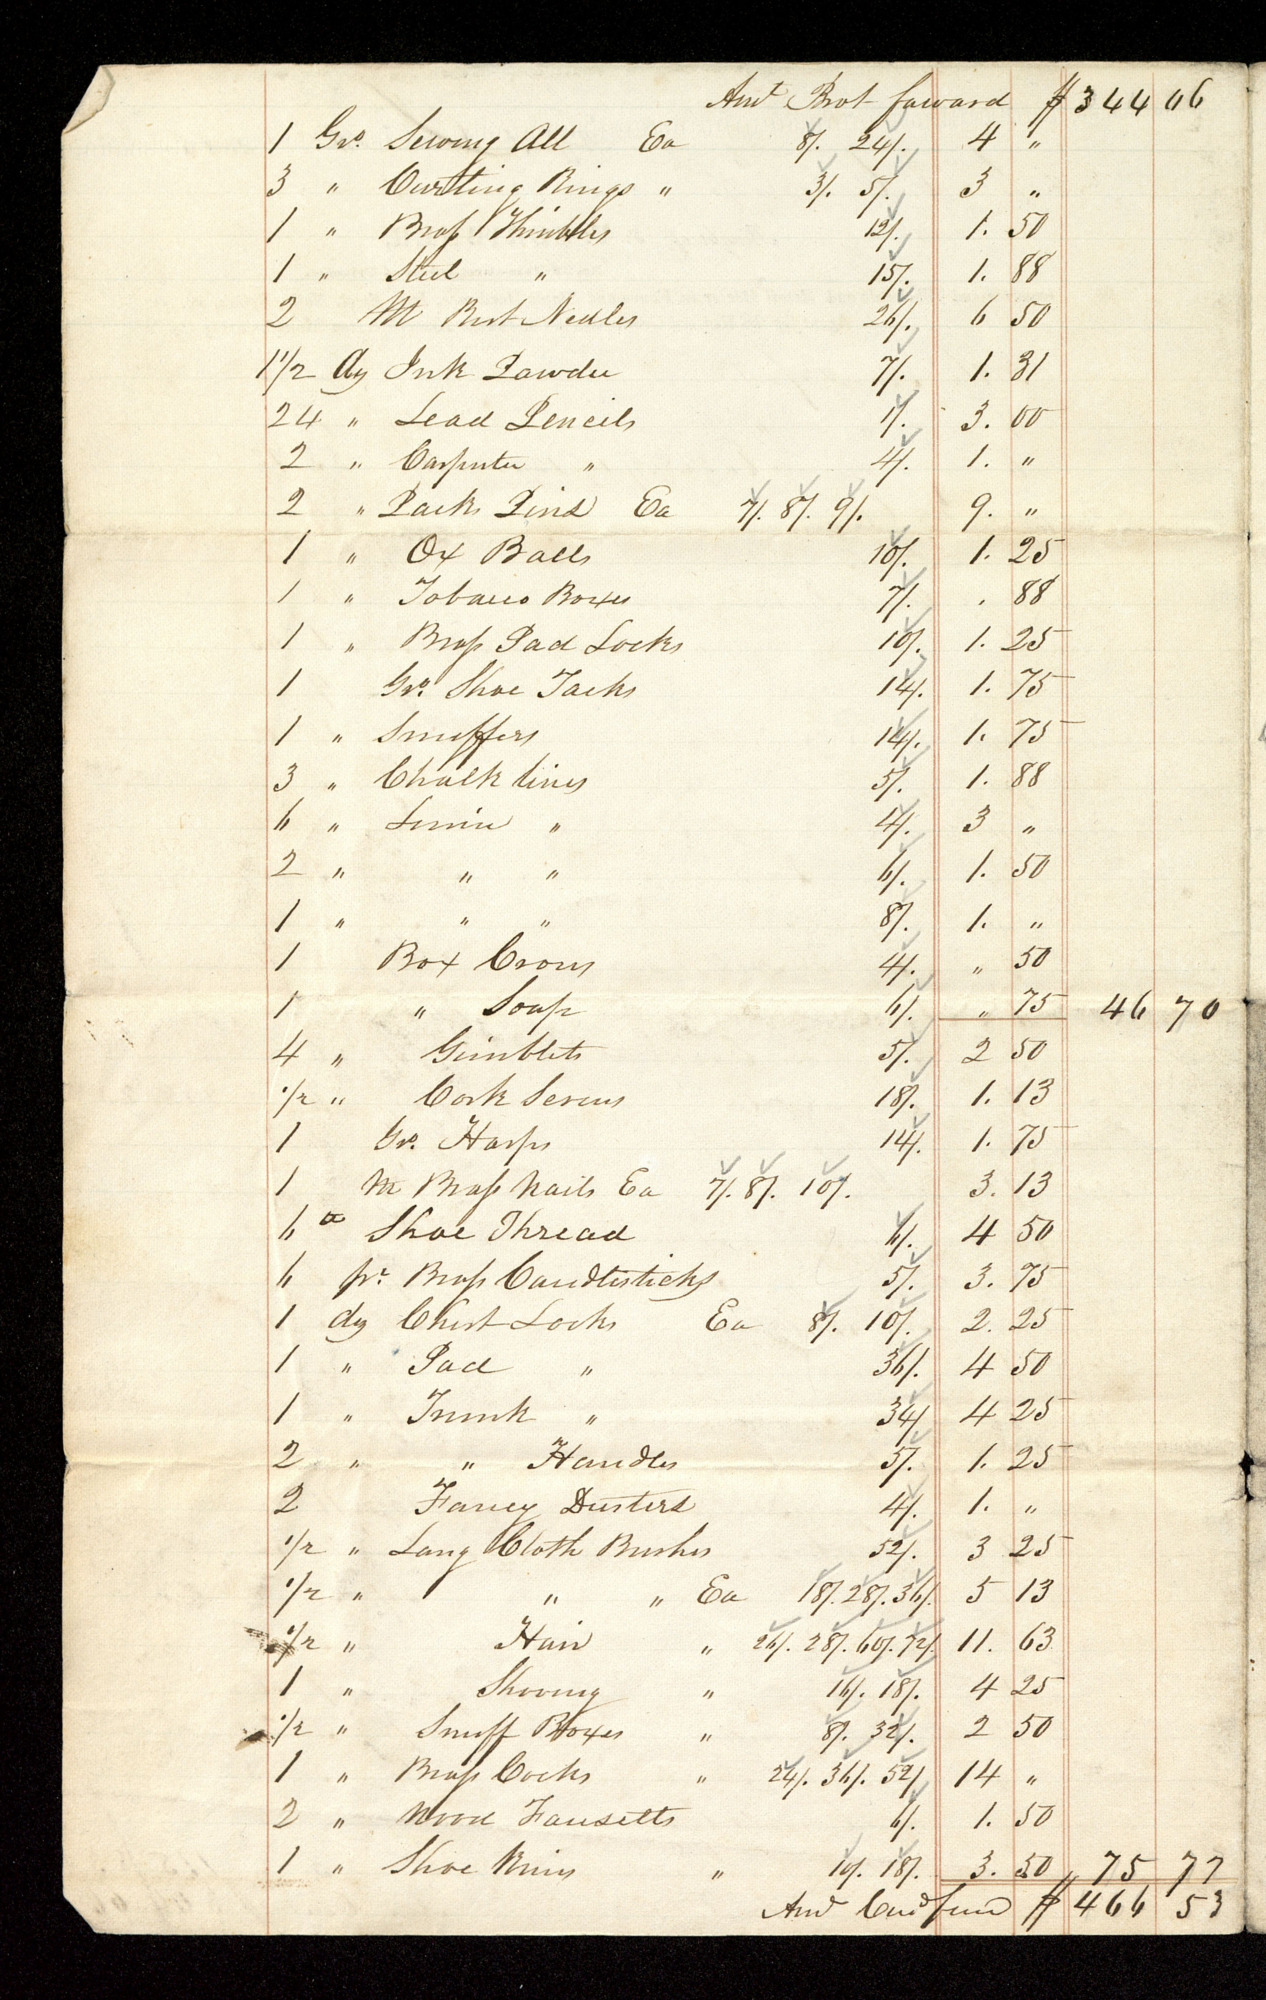 Amt Brot forward $344 06
1 Gro. Sewing All Ea 8/. 24/. 4 "
3 " Curting Rings " 3/. 5/. 3 "
1 " Brass Thimbles 12/. 1. 50
1 " Steel " 15/. 1. 88
2 M Best Nedles 26/. 6 50
1 1/2 dz Ink Powder 7/. 1. 31
24 " Lead Pencils 1/. 3. 00
2 " Carpenter " 4/. 1. "
2 " Packs Pins Ea 7/. 8/. 9/. 9. "
1 " Ox Balls 10/. 1. 25
1 " Tobacco Boxes 7/. . 88
1 " Brass Pad Locks 10/. 1. 25
1 Gro. Shoe Tacks 14/. 1. 75
1 " Snuffers 14/. 1. 75
3 " Chalk lines 5/. 1. 88
6 " " 4/. 3 "
2 " " " 6/. 1. 50
1 " " " 8/. 1. "
1 Box 4/. " 50
1 " Soap 6/. " 75 46 70
4 " Gimblets 5/. 2 50
1/2 " Cork Screws 18/. 1. 13
1 Gro. Harps 14/. 1. 75
1 M Brass Nails Ea 7/. 8/. 10/. 3. 13
6 Shoe Thread 6/. 4 50
6 pr. Brass Candlesticks 5/. 3. 75
1 dz Chest Locks Ea 8/. 10/. 2. 25
1 " Pad " 36/. 4 50
1 " Trunk " 34/ 4 25
2 " " Handles 5/. 1. 25
2 Fancy Dusters 4/. 1. "
1/2 " Long Cloth Brushes 52/. 3 25
1/2 " " " Ea 18/. 28/. 36/. 5 13
1/2 " Hair " 26/. 28/. 60/. 72/. 11. 63
1 " Shoving " 16/. 18/. 4 25
1/2 " Snuff Boxes " 8/. 32/. 2 50
1 " Brass Cocks " 24/. 36/. 52/ 14 "
2 " Wood Fausetts 6/. 1. 50
1 " Shoe " 10/. 18/. 3. 50 75 77
Amt $466 53